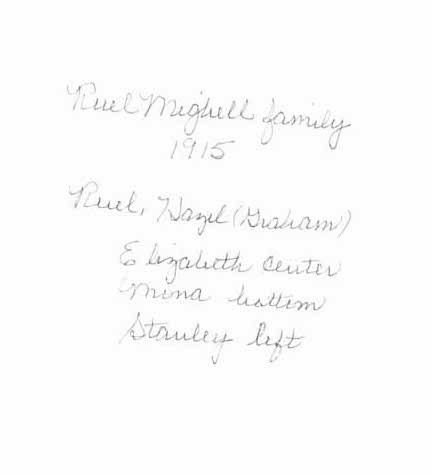 Ruel Mighell family
1915
Ruel, Hazel (Graham)
Elizabeth center
Mina bottom
Stanley left